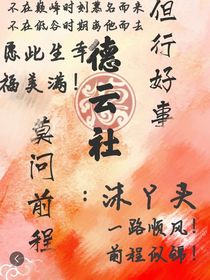 不在巅峰时刻慕名而来
不在低谷时期离他而去
愿此生幸
福美满!
德云社
但行好事
莫问前程
:沐丫头
一路顺风!
前程似锦!